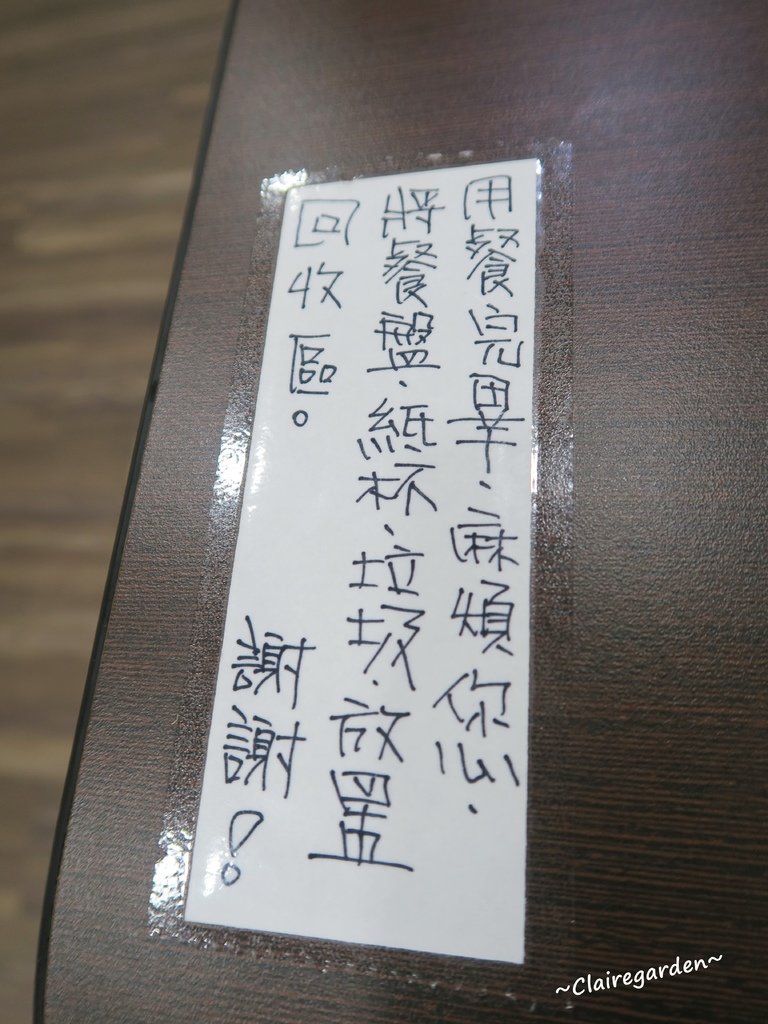 用餐完畢、麻煩您、
將餐盤、紙杯、垃圾、放置
回收區。
謝謝！
~Clairegarden~